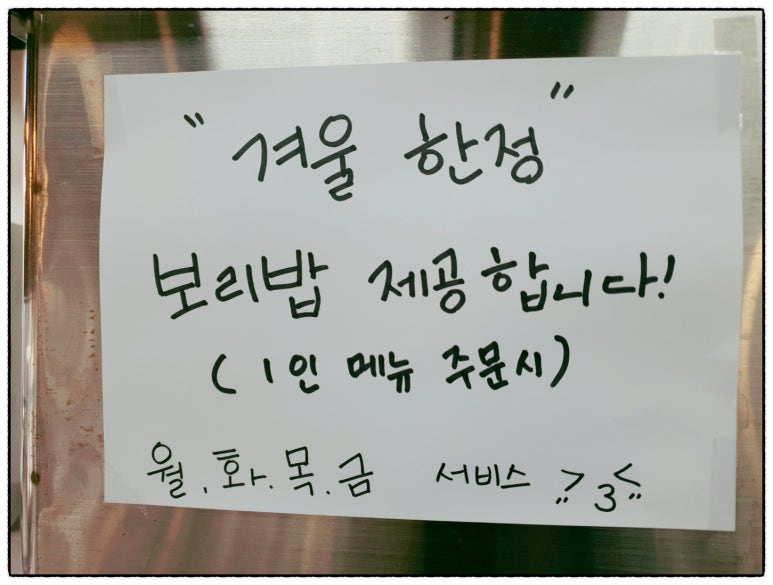 "겨울 한정"
보리밥 제공합니다!
(1인 메뉴 주문시)
월.화.목.금 서비스 >3<